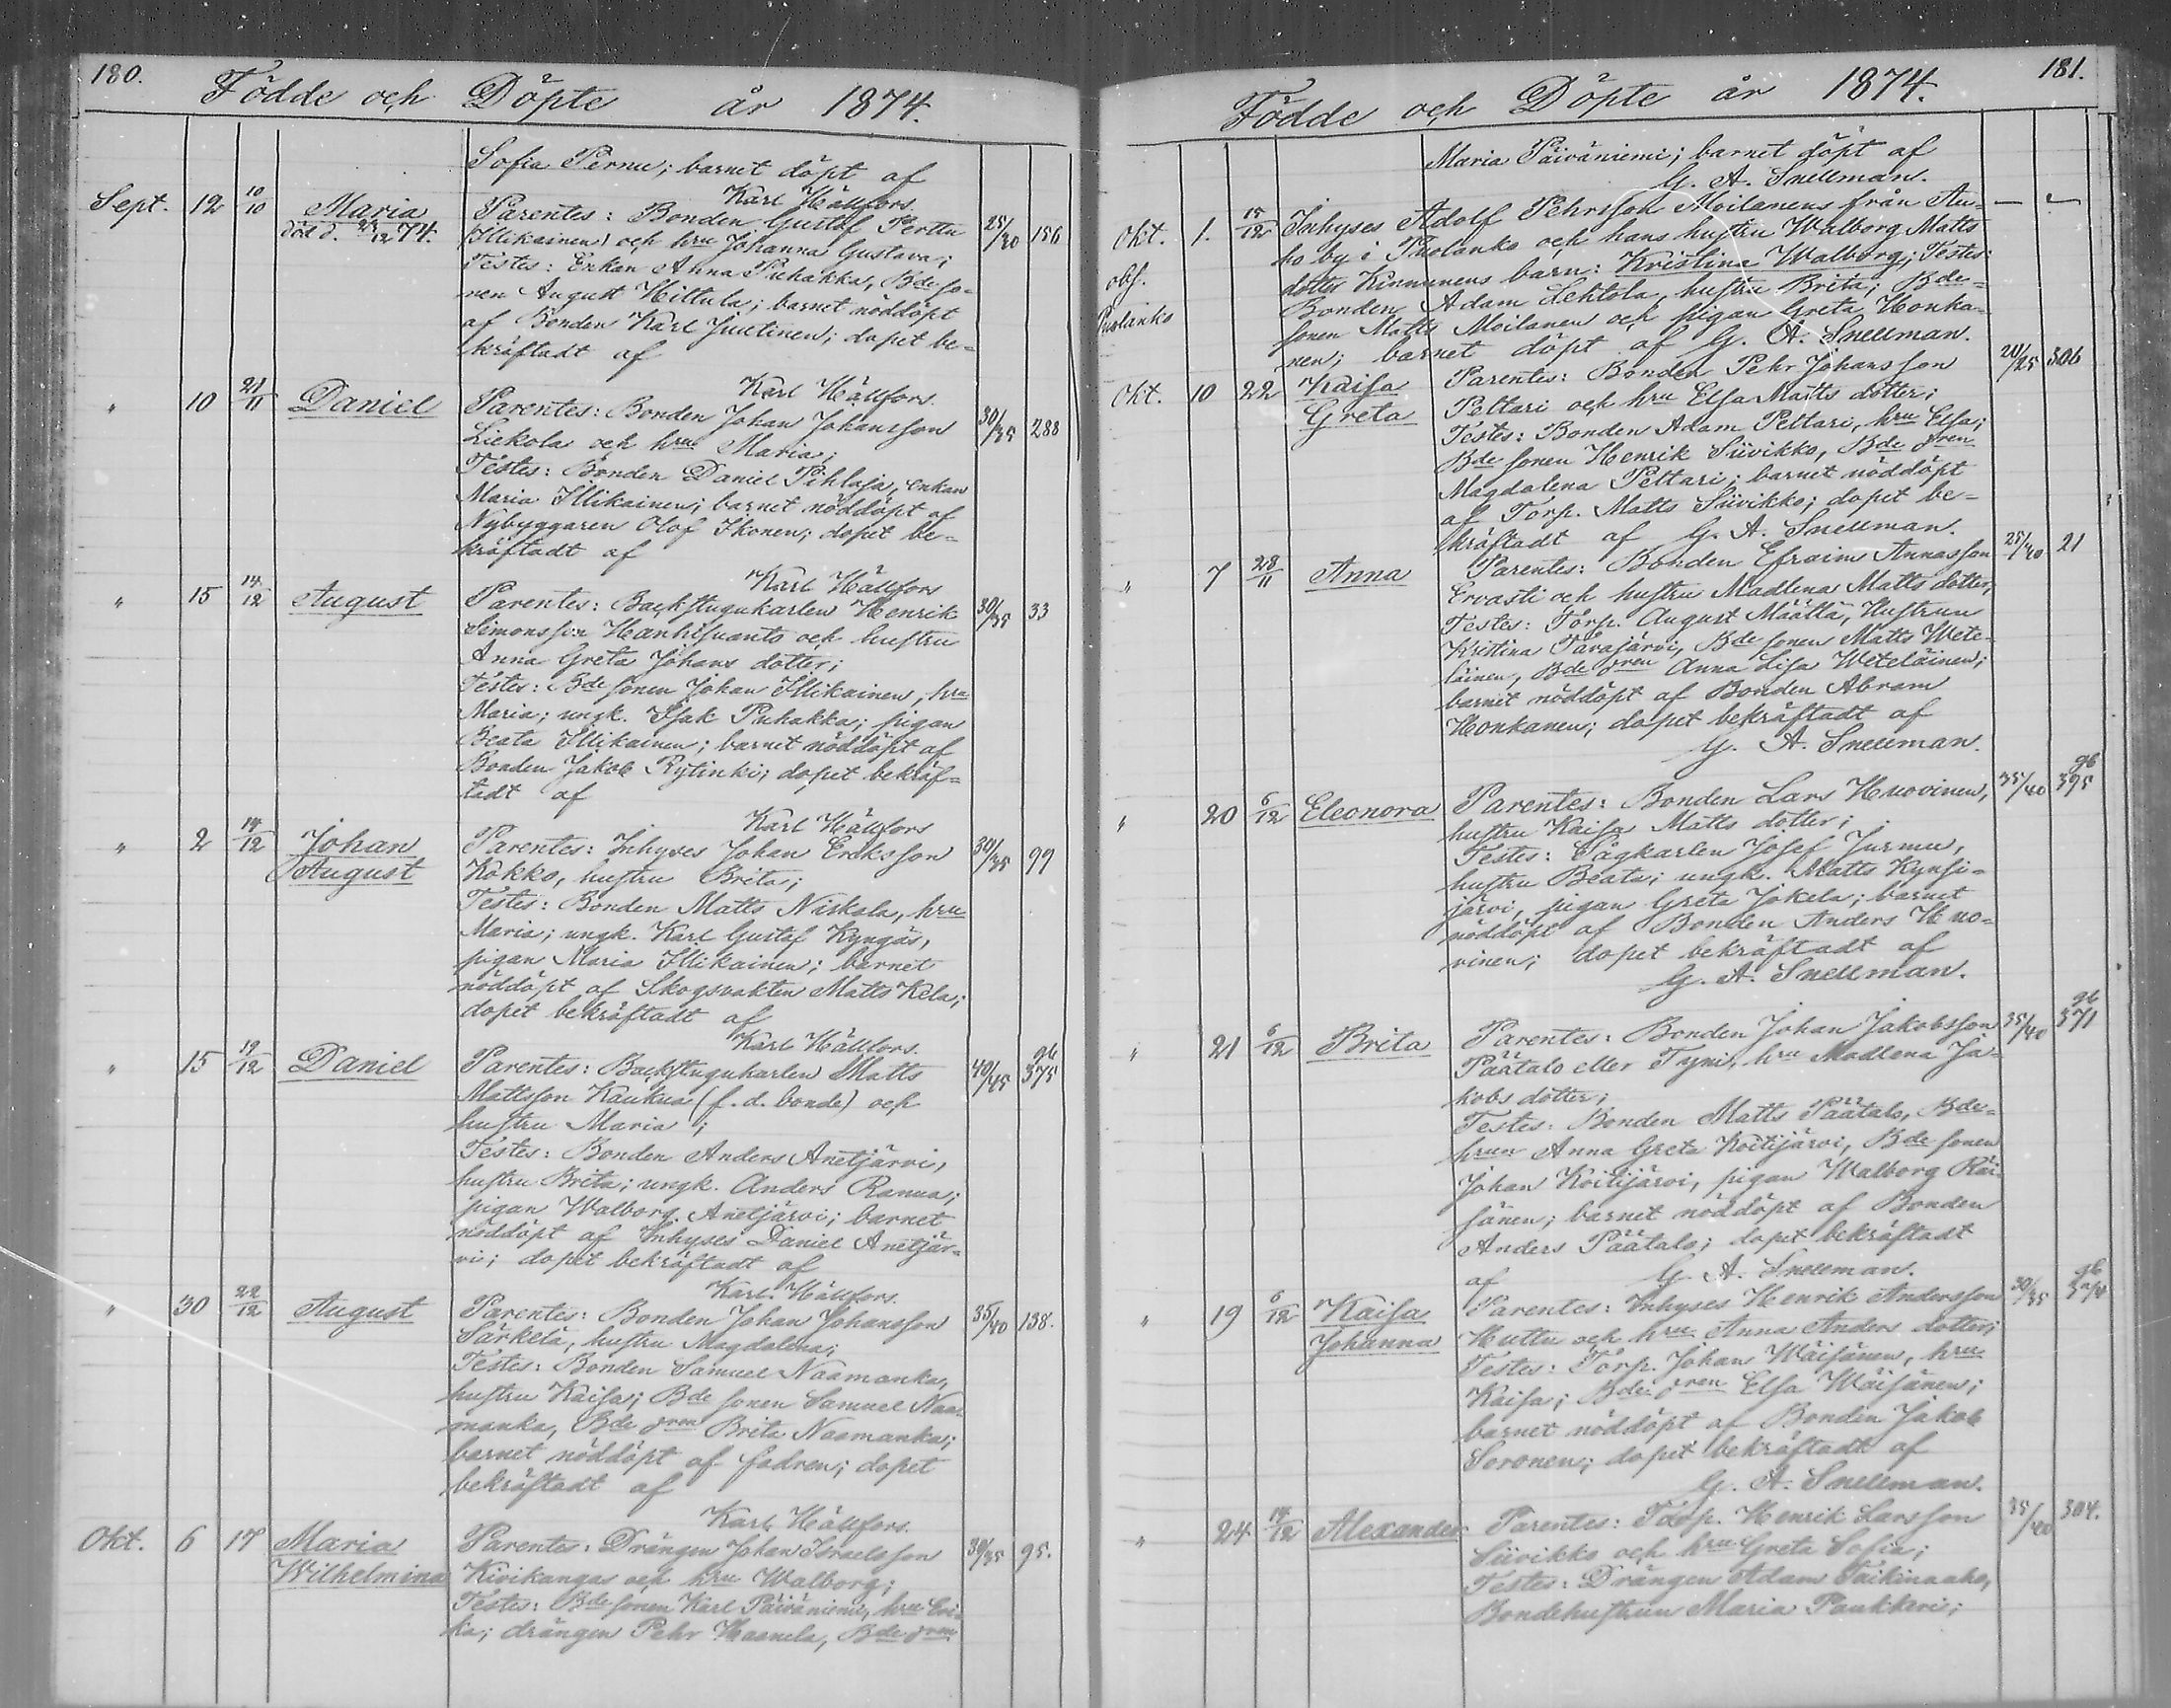 180.
Födde och Döpte år 1874.
Sofia Pernu; barnet döpt af
Karl Hällfors.
Sept. 12 10/10 Maria Parentes: Bonden Gustaf Perttu 25/30 156
död d. 23/12 74. (Illikainen) och hru Johanna Gustava;
Testes: Enkan Anna Puhakka, Bde so-
nen August Hiltula; barnet nöddöpt
af Bonden Karl Juutinen; dopet be-
kräftadt af
Karl Hällfors.
" 10 21/11 Daniel Parentes: Bonden Johan Johansson 30/35 288
Liekola och hru Maria;
Testes: Bonden Daniel Pihlaja, enkan
Maria Illikainen; barnet nöddöpt af
Nybyggaren Olof Ikonen; dopet be-
kräftadt af
Karl Hällfors
" 15 14/12 August Parentes: Backstugukarlen Henrik 30/35 33
Simonsson Hanhisuanto och hustru
Anna Greta Johans dotter;
Testes: Bde sonen Johan Illikainen, hru
Maria; ungk. Isak Puhakka; pigan
Beata Illikainen; barnet nöddöpt af
Bonden Jakob Rytinki; dopet bekräf-
tadt af
Karl Hällfors
" 2 14/12 Johan Parentes: Inhyses Johan Eriksson 30/35 99
August Kokko, hustru Brita;
Testes: Bonden Matts Niskala, hru
Maria; ungk. Karl Gustaf Kyngäs,
pigan Maria Illikainen; barnet
nöddöpt af Skogsvakten Matts Kela;
dopet bekräftadt af
Karl Hällfors.
" 15 19/12 Daniel Parentes: Backstugukarlen Matts 40/45 gb 375
Mattsson Kaukua (f.d. bonde) och
hustru Maria;
Testes: Bonden Anders Anetjärvi,
hustru Brita; ungk. Anders Ranua;
pigan Walborg Anetjärvi; barnet
nöddöpt af Inhyses Daniel Anetjär-
vi; dopet bekräftadt af
Karl Hällfors.
" 30 22/12 August Parentes: Bonden Johan Johansson 35/40 138.
Särkelä, hustru Magdalena;
Testes: Bonden Samuel Naamanka,
hustru Kaisa; Bde sonen Samuel Naa-
manka, Bde dren Brita Naamanka;
barnet nöddöpt af fadren; dopet
bekräftadt af
Karl Hällfors.
Okt. 6 17 Maria Parentes: Drängen Johan Israelsson 30/35 95.
Wilhelmina Kivikangas och hru Walborg;
Testes: Bde sonen Karl Päiväniemi, hru Eri-
ka; drängen Pehr Haanela, Bde dren
181.
Födde och Döpte år 1874.
Maria Päiväniemi; barnet döpt af
G. A. Snellman.
Okt. 1. 15/12 Inhyses Adolf Pehrsson Moilanens från Au- — —
ho by i Puolanko och hans hustru Walborg Matts
obs. dotter Kinnunens barn: Kristina Walborg; Testes:
Puolanko Bonden Adam Lehtola, hustru Brita; Bde-
sonen Matts Moilanen och pigan Greta Honka-
nen; barnet döpt af G. A. Snellman.
Okt. 10 22 Kaisa Parentes: Bonden Pehr Johansson 20/25 306
Greta Peltari och hru Elsa Matts dotter;
Testes: Bonden Adam Peltari, hru Elsa;
Bde sonen Henrik Siivikko, Bde dren
Magdalena Peltari; barnet nöddöpt
af Torp. Matts Siivikko; dopet be-
kräftadt af G. A. Snellman.
" 7 28/11 Anna Parentes: Bonden Efraim Annasson 25/40 21
Ervasti och hustru Madlena Matts dotter;
Testes: Torp. August Määttä, Hustrun
Kristina Tarajärvi, Bde sonen Matts Wete-
läinen, Bde dren Anna Lisa Weteläinen;
barnet nöddöpt af Bonden Abram
Honkanen; dopet bekräftadt af
G. A. Snellman.
" 20 6/12 Eleonora Parentes: Bonden Lars Huovinen, 35/40 gb 395
hustru Kaisa Matts dotter;
Testes: Sågkarlen Josef Jurmu,
hustru Beata; ungk. Matts Kynsi-
järvi, pigan Greta Jokela; barnet
nöddöpt af Bonden Anders Huo-
vinen; dopet bekräftadt af
G. A. Snellman.
" 21 6/12 Brita Parentes: Bonden Johan Jakobsson 35/40 gb 371
Päätalo eller Tyni, hru Madlena Ja-
kobs dotter;
Testes: Bonden Matts Päätalo, Bde-
hrun Anna Greta Koitijärvi, Bde sonen
Johan Koitijärvi, pigan Walborg Räi-
sänen; barnet nöddöpt af Bonden
Anders Päätalo; dopet bekräftadt
af G. A. Snellman.
" 19 6/12 Kaisa Parentes: Inhyses Henrik Andersson 30/35 gb
Johanna Huttu och hru Anna Anders dotter;
Testes: Torp. Johan Wäisänen, hru
Kaisa; Bde dren Elsa Wäisänen;
barnet nöddöpt af Bonden Jakob
Soronen; dopet bekräftadt af
G. A. Snellman.
" 24 14/12 Alexander Parentes: Torp. Henrik Larsson 35/40 304.
Siivikko och hru Greta Sofia;
Testes: Drängen Adam Taikinaaho,
Bondehustrun Maria Paukkeri;